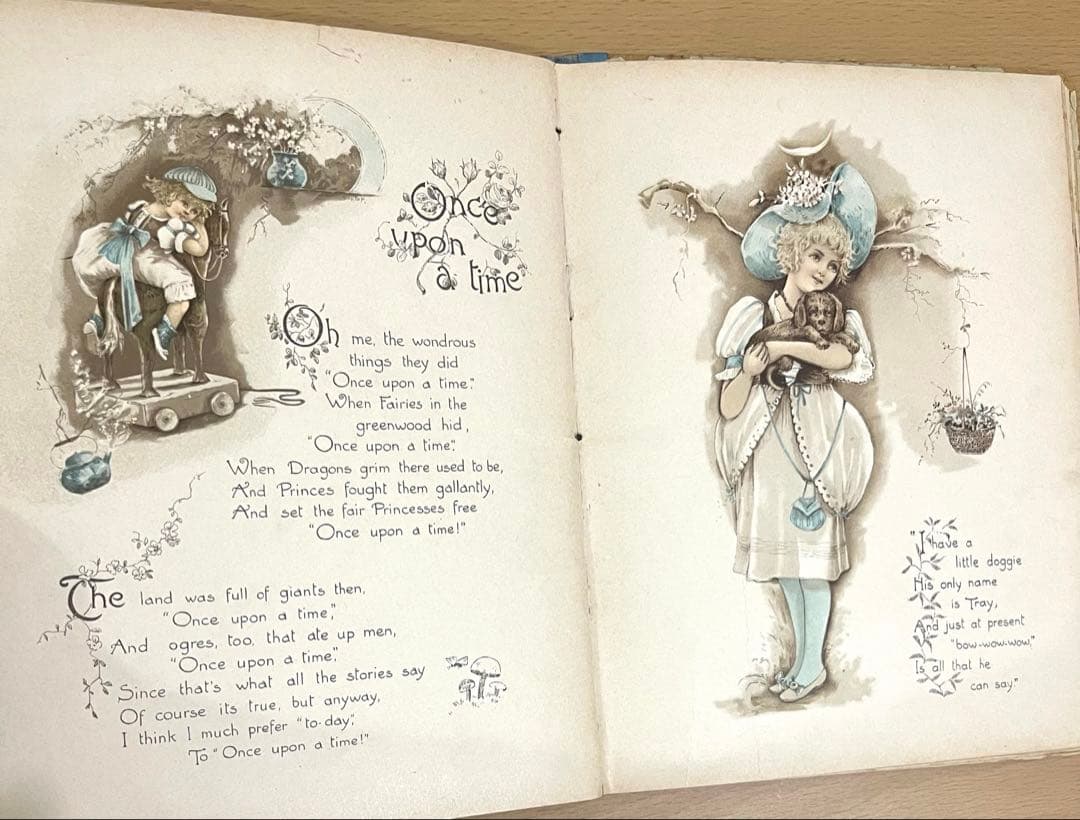 Once
upon
a time
Oh me, the wondrous
things they did
"Once upon a time."
When Fairies in the
greenwood hid,
"Once upon a time."
When Dragons grim there used to be,
And Princes fought them gallantly,
And set the fair Princesses free
"Once upon a time!"
The land was full of giants then,
"Once upon a time,"
And ogres, too, that ate up men,
"Once upon a time."
Since that's what all the stories say
Of course its true, but anyway,
I think I much prefer "to-day,"
To "Once upon a time!"
"I have a
little doggie
His only name
is Tray,
And just at present
"bow-wow-wow,"
Is all that he
can say."